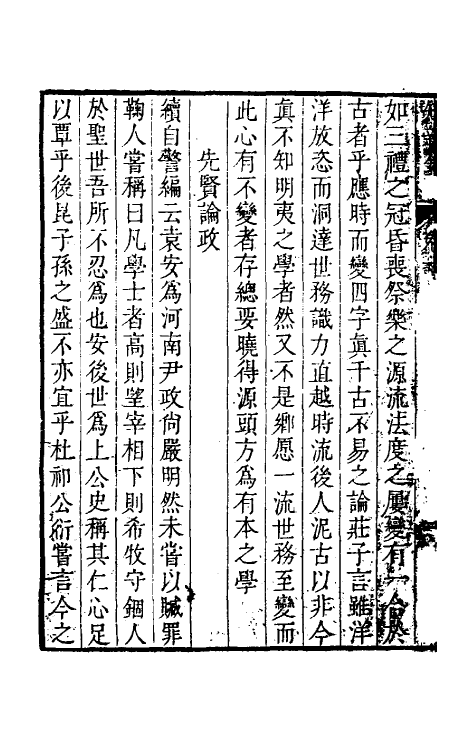 如三禮之冠昏喪祭樂之源流法度之屢變有一合於
古者乎應時而變四字眞千古不易之論莊子言雖洋
洋放恣而洞達世務識力直越時流後人泥古以非今
眞不知明夷之學者然又不是鄉愿一流世務至變而
此心有不變者存總要曉得源頭方爲有本之學
先賢論政
續自警編云袁安爲河南尹政尙嚴明然未嘗以贓罪
鞠人嘗稱曰凡學士者高則望宰相下則希牧守錮人
於聖世吾所不忍爲也安後世爲上公史稱其仁心足
以覃乎後昆子孫之盛不亦宜乎杜祁公衍嘗言今之